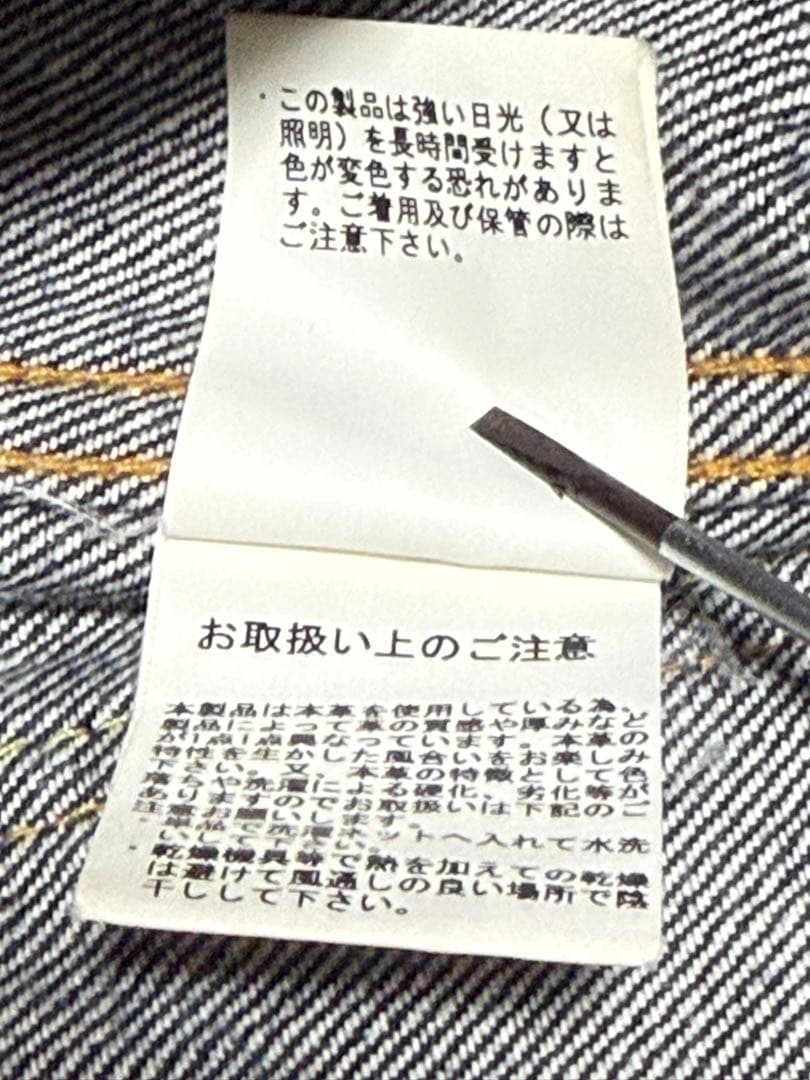 ・この製品は強い日光（又は
照明）を長時間受けますと
色が変色する恐れがありま
す。ご着用及び保管の際は
ご注意下さい。
お取扱い上のご注意
本製品は本革を使用している為、
製品によって革の質感や厚みなど
が1点1点異なっています。本革の
特性を生かした風合いをお楽しみ
下さい。又、本革の特徴として色
落ちや洗濯による硬化、劣化等が
ありますのでお取扱いは下記のご
注意お願いします。
・単品で洗濯ネットへ入れて水洗
いして下さい。
・乾燥機具等で熱を加えての乾燥
は避けて風通しの良い場所で陰
干しして下さい。